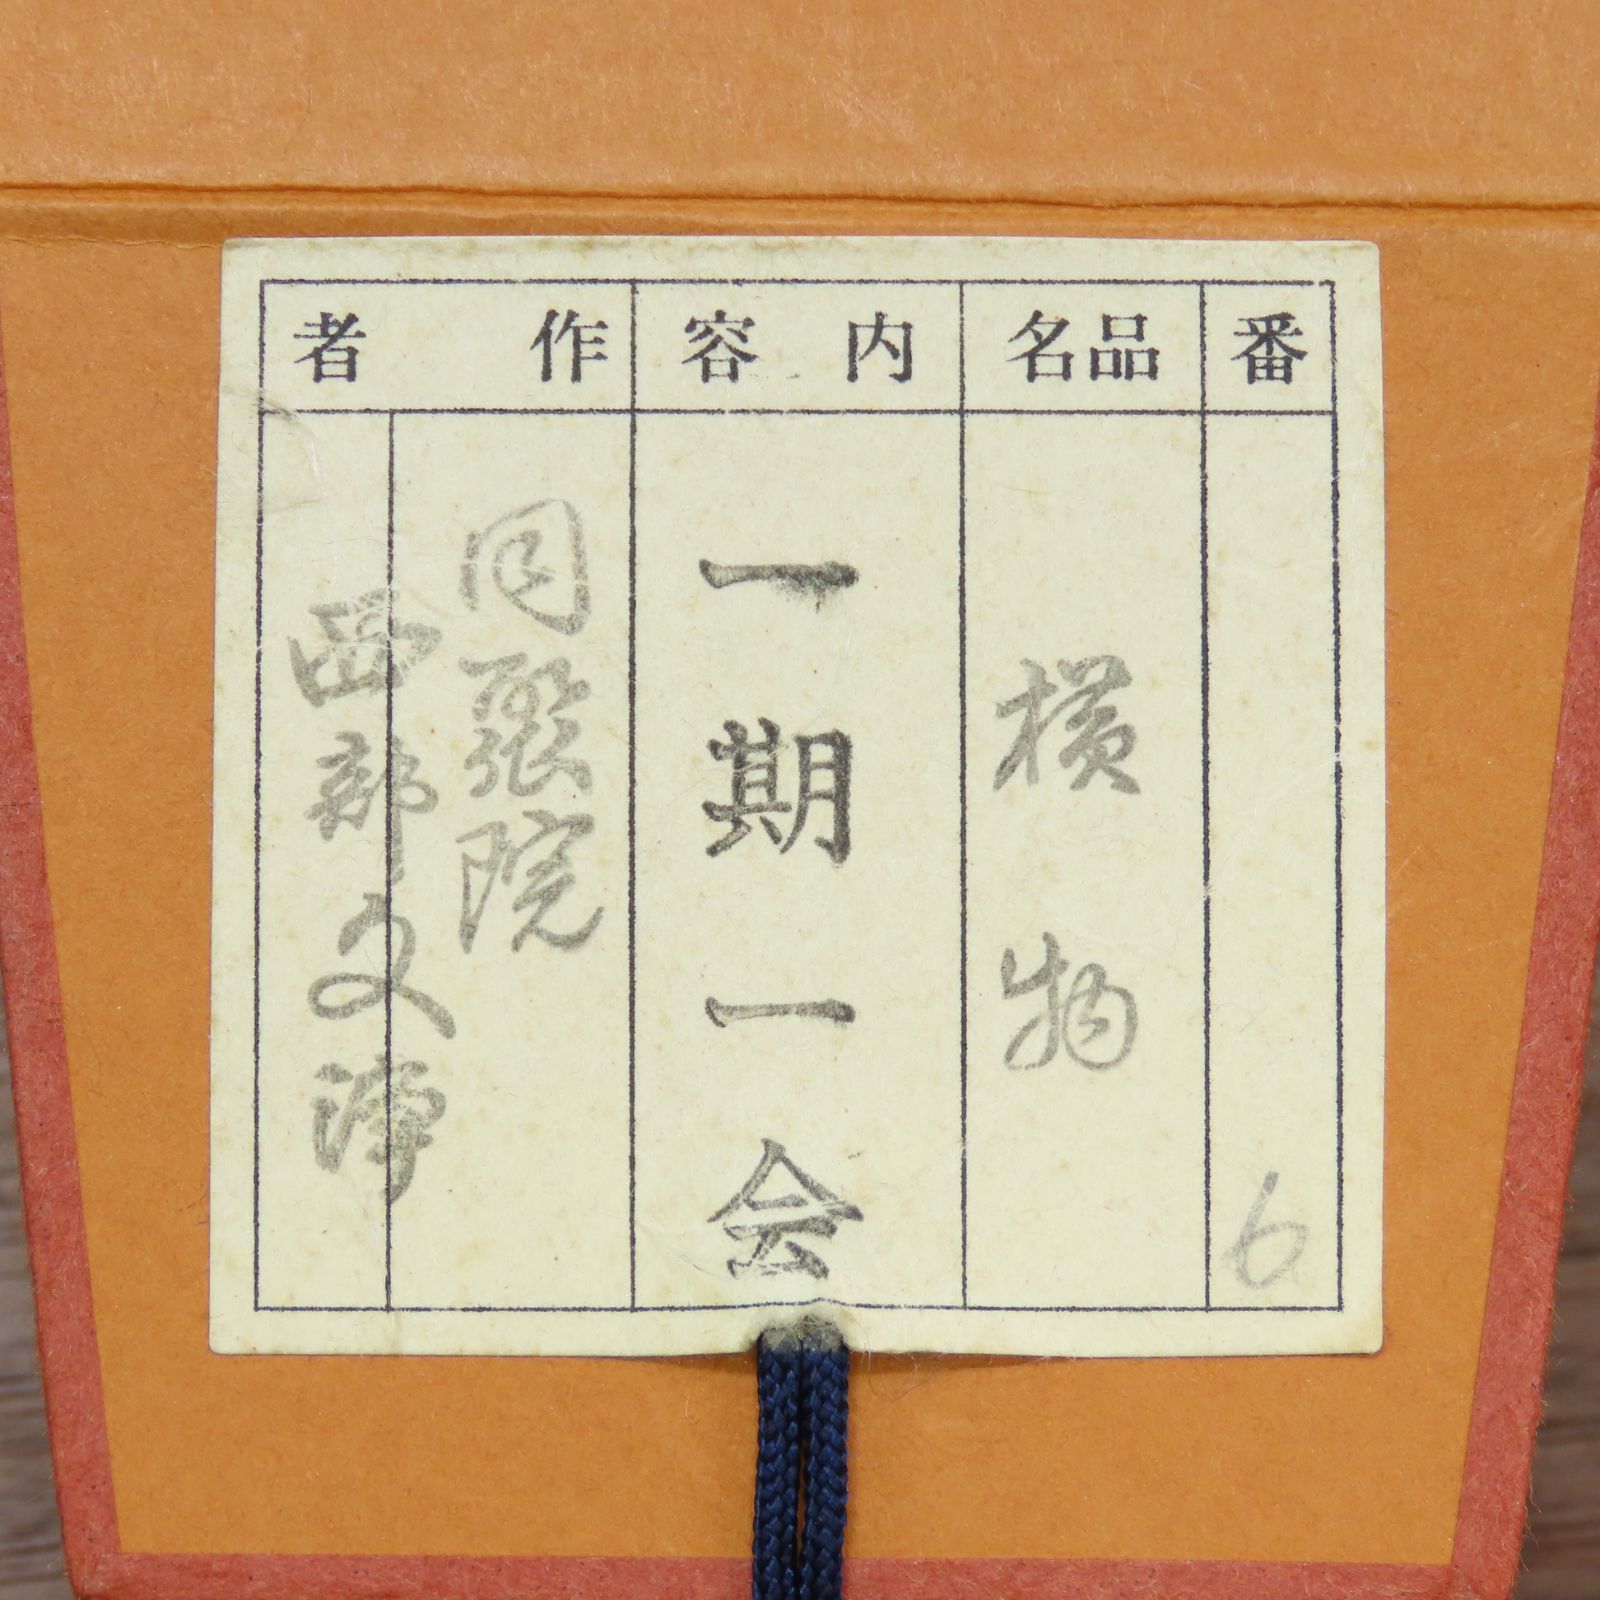 番
6
品名
横物
内容
一期一会
作者
同聚院
西部文浄